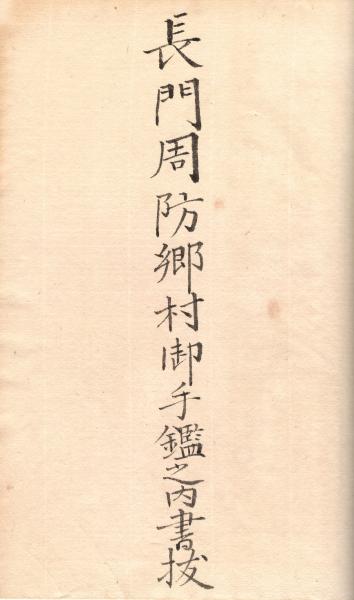 長門周防郷村御手鑑之内書抜